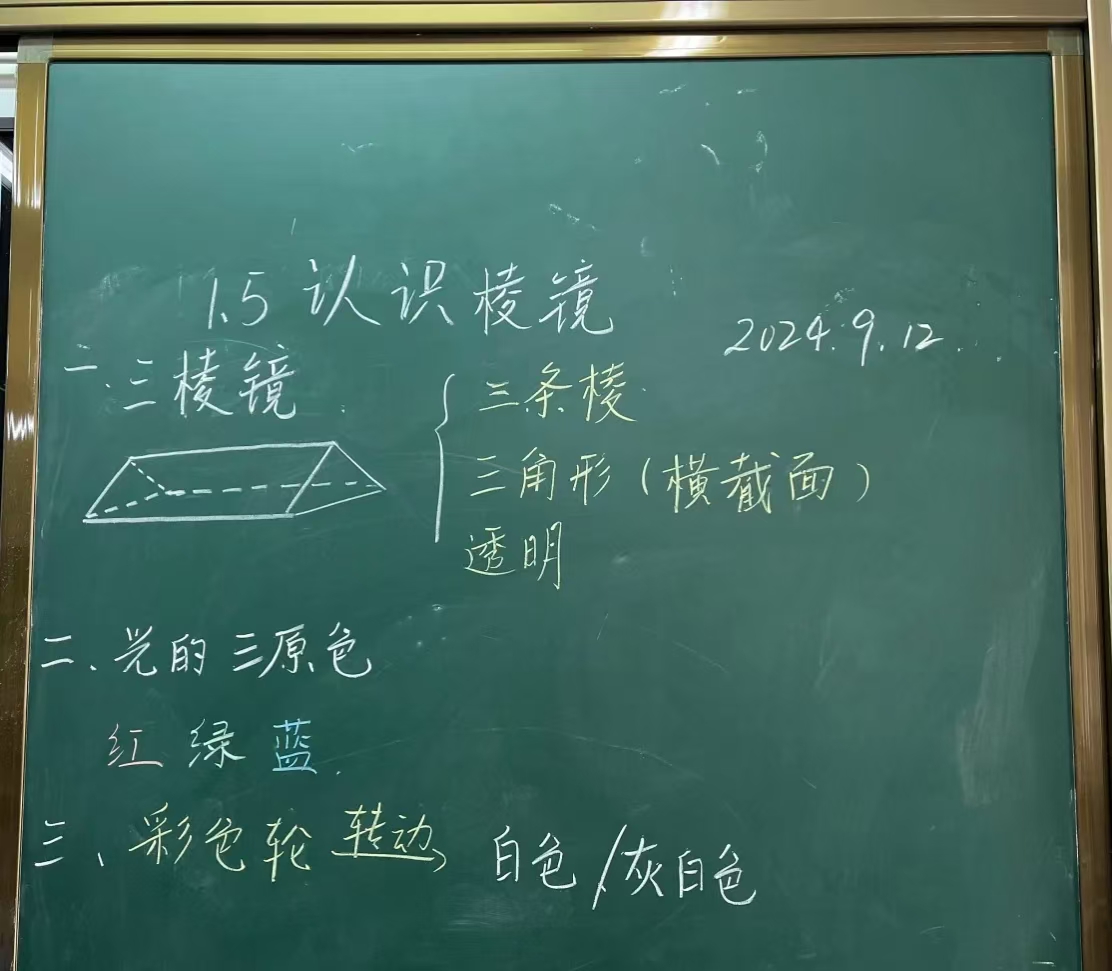 1.5 认识棱镜
2024.9.12
一、三棱镜
三条棱
三角形（横截面）
透明
二、光的三原色
红 绿 蓝
三、彩色轮 转动 白色/灰白色